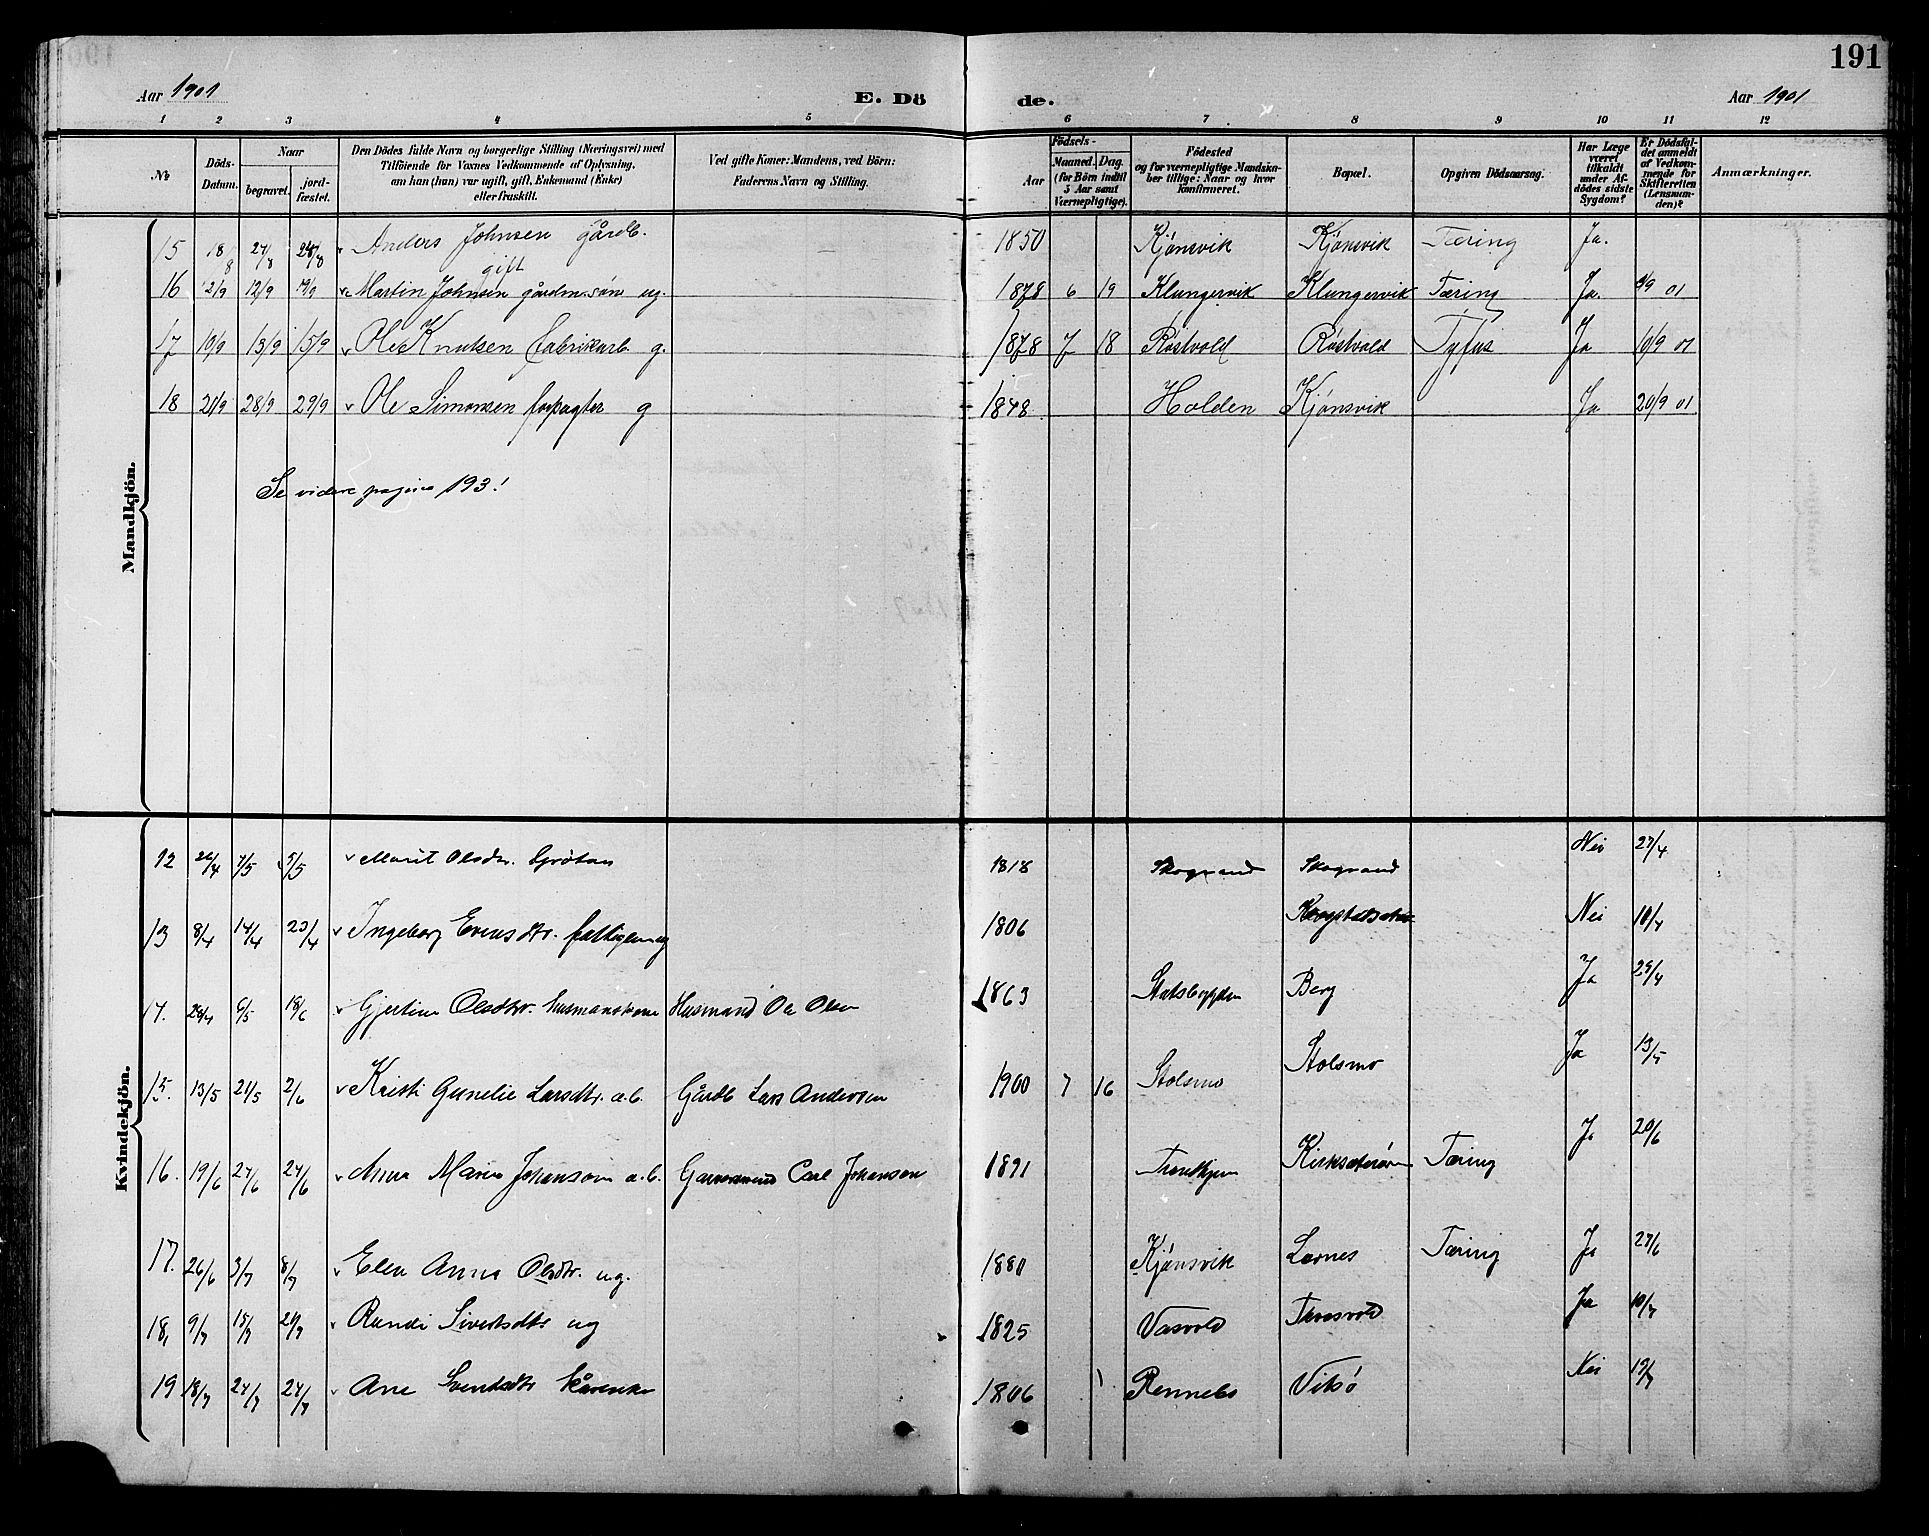 191
Aar 1901 E. Dö de. Aar 1901
1 2 3 4 5 6 7 8 9 10 11 12
No Döds-Datum. Naar begravet. jordfæstet. Den Dødes fulde Navn og borgerlige Stilling (Næringsvei) med Tilföiende for Voxnes Vedkommende af Oplysning, om han (hun) var ugift, gift, Enkemand (Enke) eller fraskilt. Ved gifte Koner: Mandens, ved Börn: Faderens Navn og Stilling. Aar Födsels- Maaned. Dag. (for Börn indtil 5 Aar samt Værnepligtige). Födested og for værnepligtige Mandskaber tillige: Naar og hvor konfirmeret. Bopæl. Opgiven Dödsaarsag. Har Læge været tilkaldt under Afdödes sidste Sygdom? Er Dödsfaldet anmeldt af Vedkommende for Skifteretten (Lensmanden)? Anmærkninger.
Mandkjön.
15 18/8 27/8 28/8 Anders Johnsen gårdb. gift 1850 Kjönsvik Kjönsvik Tæring Ja.
16 2/9 12/9 19/9 Martin Johnsen gårdm.sön ug. 1878 6 19 Klungervik Klungervik Tæring Ja. 4/9 01
17 10/9 15/9 15/9 Ole Knutsen fabrikarb. g. 1878 7 18 Röstvold Röstvold Tyfus Ja 16/9 01
18 21/9 28/9 29/9 Ole Simonsen forpagter g 1848 Holden Kjönsvik Ja 20/9 01
Se videre pagina 193!
Kvindekjön.
12 26/4 7/5 5/5 Marit Olsdtr. 1818 Skogrand Skogrand Nei 27/4
13 8/4 14/4 23/4 Ingeborg 1806 Nei 10/4
14. 6/5 18/6 Gjertine Olsdtr. husmanskone Husmand Ole Olsen 1863 Statsbygden Berg Ja 29/4
15. 13/5 21/5 2/6 Kristi Gunelie Larsdtr. a.b. Gårdb Lars Andersen 1900 7 16 Stolsmo Stolsmo Ja 13/5
16. 19/6 24/6 24/6 Anna Marie Johanson a.b. Carl Johanson 1891 Trondhjem Kirksæterören Tæring Ja 20/6
17. 26/6 3/7 8/7 Elen Anna Olsdtr. ug. 1880 Kjönsvik Lernes Tæring Ja 27/6
18, 9/7 15/7 21/7 Randi Sivertsdtr ug 1825 Vasvold Ja 10/7
19 18/7 24/7 24/7 Ane 1806 Rennebo Vitsö Nei 19/7